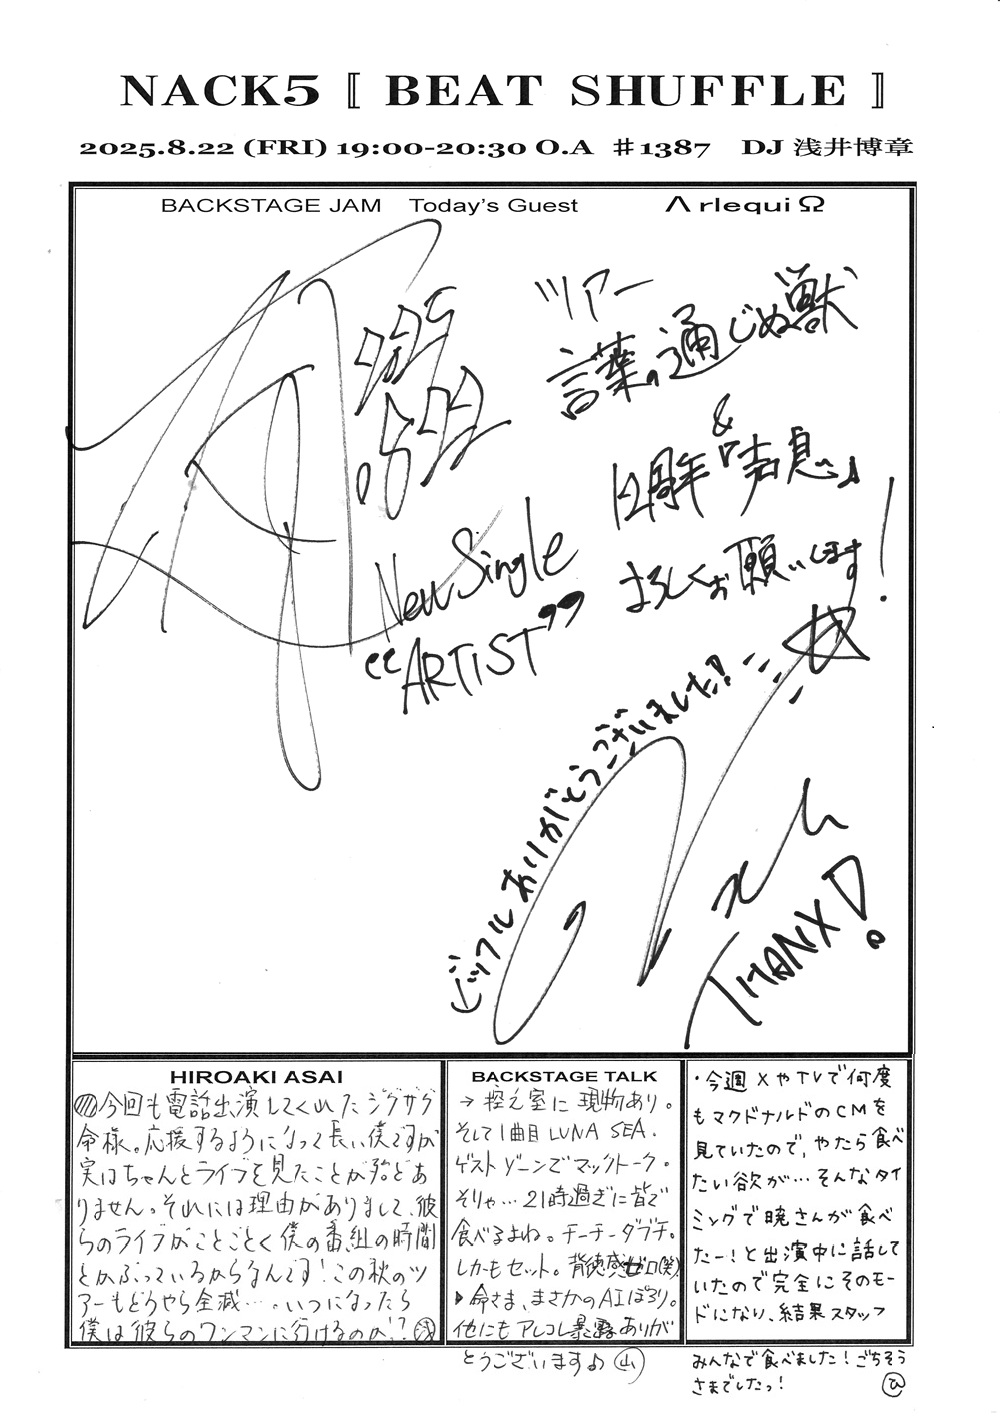 NACK5 〚 BEAT SHUFFLE 〛
2025.8.22 (FRI) 19:00-20:30 O.A ♯1387 DJ 浅井博章
BACKSTAGE JAM Today's Guest Λ rlequi Ω
暁
ツアー
言葉の通じぬ獣
&
12周年 "声息"♪
よろしくお願いします!
New Single
“ARTIST”
ビッフルありがとうございました!
THANX!
HIROAKI ASAI
今回も電話出演してくれたジグザグ
命様。応援するようになって長い僕ですが
実はちゃんとライブを見たことが殆どあ
りません。それには理由がありまして、彼
らのライブがことごとく僕の番組の時間
とかぶっているからなんです!この秋のツ
アーもどうやら全滅…。いつになったら
僕は彼らのワンマンに行けるのか!?浅
BACKSTAGE TALK
→ 控え室に現物あり。
そして1曲目LUNA SEA.
ゲストゾーンでマックトーク。
そりゃ…21時過ぎに皆で
食べるよね。チーチーダブチ。
しかもセット。背徳感ゼロ(笑)
▶命さま、まさかのAIぽろり。
他にもアレコレ暴露ありが
とうございます♪ 山
・今週XやTVで何度
もマクドナルドのCMを
見ていたので、やたら食べ
たい欲が…そんなタイ
ミングで暁さんが食べ
たー!と出演中に話して
いたので完全にそのモー
ドになり、結果スタッフ
みんなで食べました!ごちそう
さまでしたっ! ひ